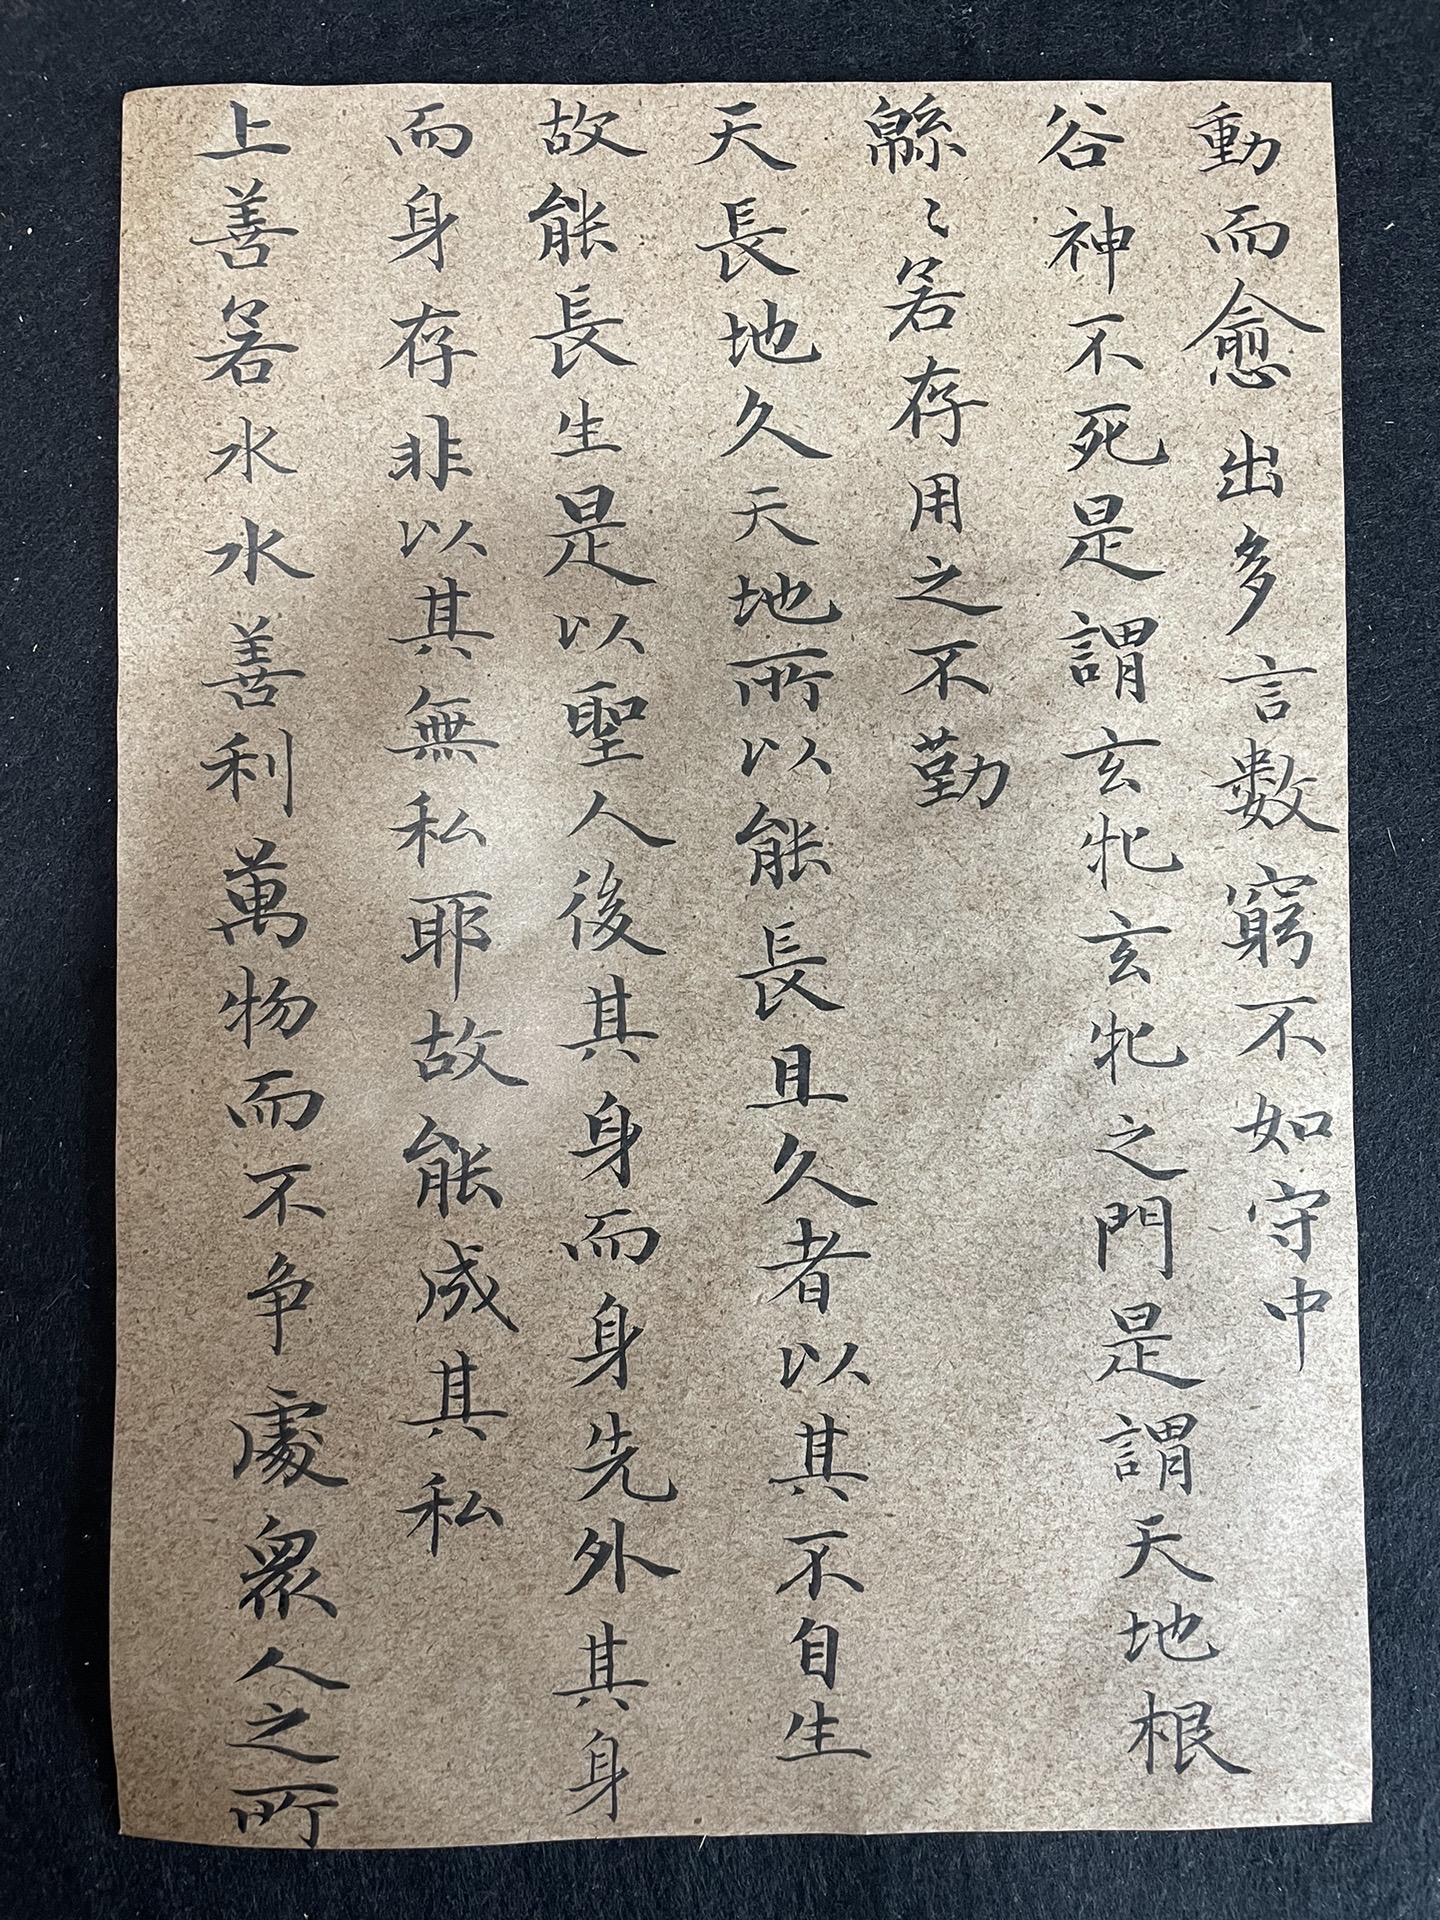 動而愈出多言數窮不如守中
谷神不死是謂玄牝玄牝之門是謂天地根
緜〻若存用之不勤
天長地久天地所以能長且久者以其不自生
故能長生是以聖人後其身而身先外其身
而身存非以其無私耶故能成其私
上善若水水善利萬物而不争處眾人之所